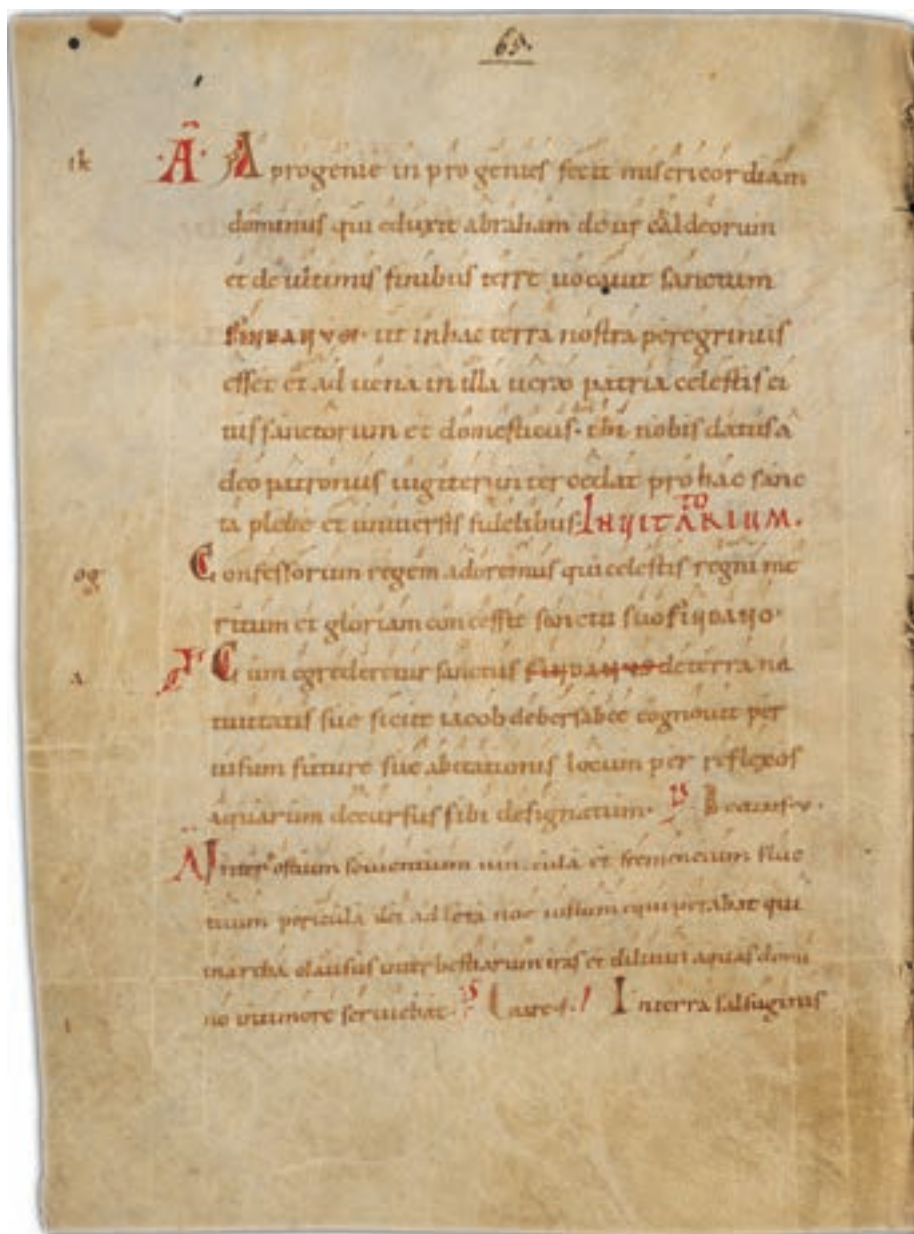 65.
A A progenie in progenies fecit misericordiam
dominus qui eduxit abraham de ur caldeorum
et de ultimis finibus terre uocauit sanctum
FINDANVM. ut in hac terra nostra peregrinus
esset et ad uena in illa uero patria celestis ci
uis sanctorum et domesticus. ibi nobis datus a
deo patronus iugiter inter cedat pro hac sanc
ta plebe et uniuersis fidelibus. INVITATORIUM.
og Confessorum regem adoremus qui celestis regni me
ritum et gloriam concessit sancto suo FINDANO.
a Cum egrederetur sanctus FINDANUS de terra na
tiuitatis sue sicut iacob de bersabee cognouit per
uisum future sue abitationis locum per reflexos
aquarum decursus sibi designatum. Ps Beatus. v.
A Inter ostium seuientium uin cula et frementium fluc
tuum pericula dei ad leta noe iustum equiperabat qui
in archa clausus inter bestiarum iras et diluuii aquas domi
no in timore seruiebat. Ps In terra salsuginis